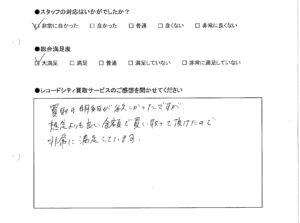 ●スタッフの対応はいかがでしたか？
☑非常に良かった □良かった □普通 □良くない □非常に良くない
●総合満足度
☑大満足 □満足 □普通 □満足していない □非常に満足していない
●レコードシティ買取サービスのご感想を聞かせてください
買取の明細が欲しかったですが
想定よりも良い金額で買い取って頂けたので
非常に満足しています。